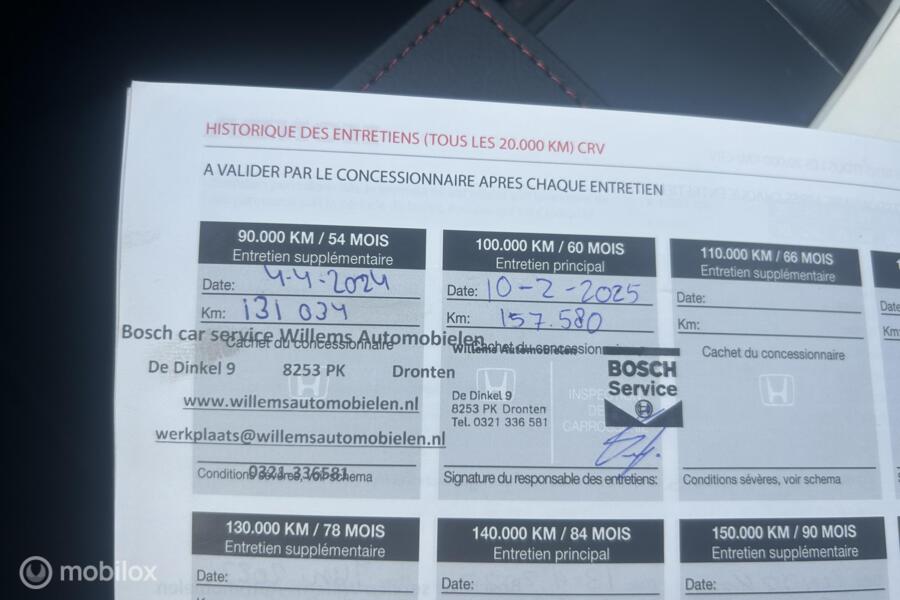 HISTORIQUE DES ENTRETIENS (TOUS LES 20.000 KM) CRV
A VALIDER PAR LE CONCESSIONNAIRE APRES CHAQUE ENTRETIEN
90.000 KM / 54 MOIS
Entretien supplémentaire
Date: 4-4-2024
Km: 131 034
Cachet du concessionnaire
Bosch car service Willems Automobielen
De Dinkel 9 8253 PK Dronten
www.willemsautomobielen.nl
werkplaats@willemsautomobielen.nl
0321-336581
Conditions sévères, voir schema
100.000 KM / 60 MOIS
Entretien principal
Date: 10-2-2025
Km: 157.580
Cachet du concessionnaire
Willems Automobielen
De Dinkel 9
8253 PK Dronten
Tel. 0321 336 581
BOSCH
Service
Signature du responsable des entretiens:
110.000 KM / 66 MOIS
Entretien supplémentaire
Date:
Km:
Cachet du concessionnaire
Conditions sévères, voir schema
130.000 KM / 78 MOIS
Entretien supplémentaire
Date:
140.000 KM / 84 MOIS
Entretien principal
Date:
150.000 KM / 90 MOIS
Entretien supplémentaire
Date:
mobilox